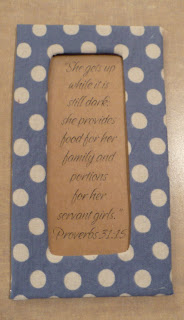 "She gets up
while it is
still dark;
she provides
food for her
family and
portions
for her
servant girls."
Proverbs 31:15